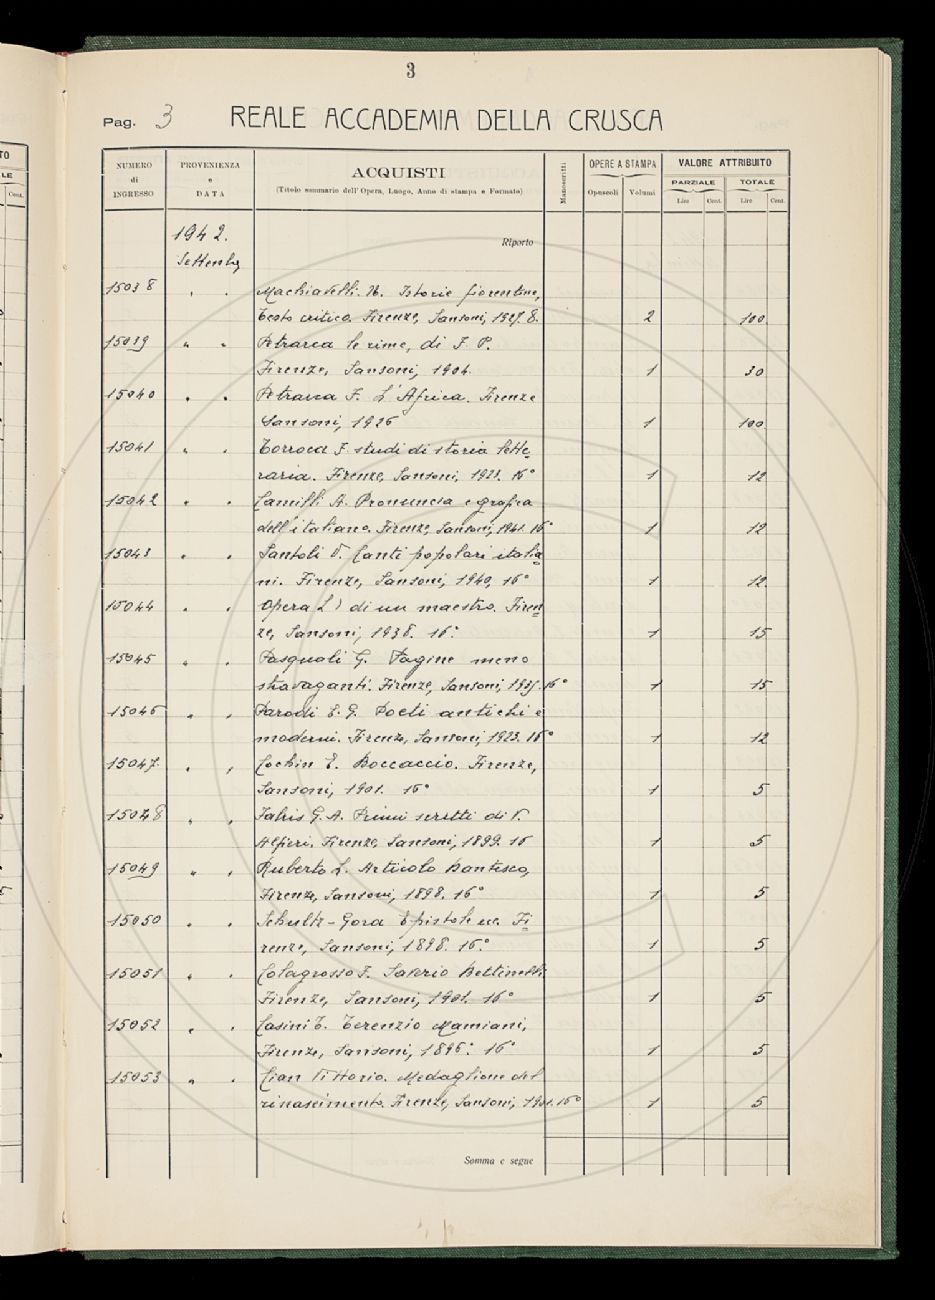 3
Pag. 3 REALE ACCADEMIA DELLA CRUSCA
NUMERO di INGRESSO
PROVENIENZA e DATA
ACQUISTI
(Titolo sommario dell'Opera, Luogo, Anno di stampa e Formato)
Manoscritti
OPERE A STAMPA
Opuscoli Volumi
VALORE ATTRIBUITO
PARZIALE TOTALE
Lire Cent. Lire Cent.
1942. Riporto
Settembre
15038 " " Machiavelli. N. Istorie fiorentine,
testo critico. Firenze, Sansoni, 1927. 8. 2 100
15039 " " Petrarca le rime, di F. P.
Firenze, Sansoni, 1904. 1 30
15040 " " Petrarca F. L'Africa. Firenze
Sansoni, 1926 1 100
15041 " " Torraca F. studi di storia lette-
raria. Firenze, Sansoni, 1923. 16° 1 12
15042 " " Camilli A. Pronuncia e grafia
dell'italiano. Firenze, Sansoni, 1941. 16° 1 12
15043 " " Santoli V. Canti popolari italia-
ni. Firenze, Sansoni, 1940, 16° 1 12
15044 " " Opera L') di un maestro. Firen-
ze, Sansoni, 1938. 16°. 1 15
15045 " " Pasquali G. Pagine meno
stravaganti. Firenze, Sansoni, 1935. 16° 1 15
15046 " " Parodi E. G. Poeti antichi e
moderni. Firenze, Sansoni, 1923. 16° 1 12
15047 " " Cochin E. Boccaccio. Firenze,
Sansoni, 1901. 16° 1 5
15048 " " Fabris G. A. Primi scritti di V.
Alfieri. Firenze, Sansoni, 1899. 16 1 5
15049 " " Ruberto L. Articolo Dantesco,
Firenze, Sansoni, 1898. 16° 1 5
15050 " " Schultz-Gora Epistole ecc. Fi-
renze, Sansoni, 1898. 16.° 1 5
15051 " " Colagrosso F. Saverio Bettinelli.
Firenze, Sansoni, 1901. 16° 1 5
15052 " " Casini T. Terenzio Mamiani,
Firenze, Sansoni, 1896. 16° 1 5
15053 " " Cian Vittorio. Medaglione del
rinascimento. Firenze, Sansoni, 1901. 16° 1 5
Somma e segue